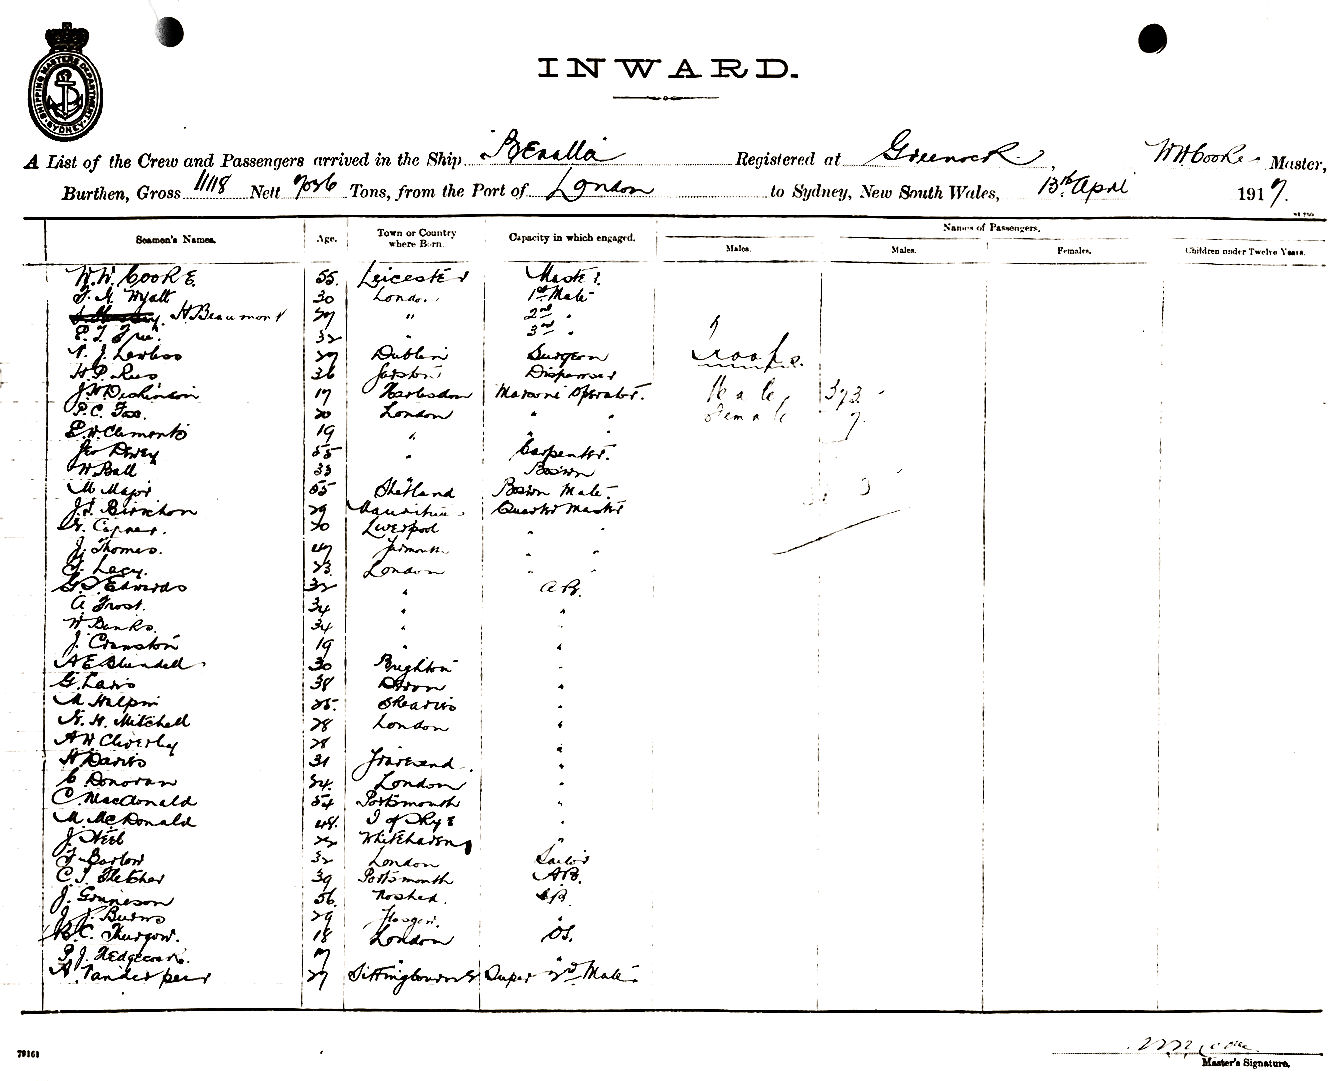 SHIPPING MASTERS DEPARTMENT SYDNEY
INWARD.
A List of the Crew and Passengers arrived in the Ship Benalla Registered at Greenock, WW Cooke Master,
Burthen, Gross 11118 Nett 7036 Tons, from the Port of London to Sydney, New South Wales, 13th April 1917.
Seamen's Names. Age. Town or Country where Born. Capacity in which engaged. Names of Passengers.
Males. Males. Females. Children under Twelve Years.
W.W. Cooke 55. Leicester Master
T. M. Wyatt 30 London 1st Mate
H. Beaumont 27 " 2nd "
32 " 3rd "
27 Dublin Surgeon Troops.
H. P. Rees 36 Dispenser
J. H. Dickinson 19 Harlesdon Marconi Operator. Male, 373
P. C. Fox. 20 London " " Female 7.
E. W. Clements 19 " " "
Geo Dewey 55 " Carpenter.
W Ball 33 Bosun
M Major 55 Shetland Bosun Mate.
29 Mauritius Quarter Master
20 Liverpool " "
J. Thomas. 47 Yarmouth " "
F. Lacy. 23. London " "
G. S. Edwards 32 " A B.
A Frost. 34 " "
W Banks. 34 " "
J. Cranston 19 " "
A E Blundell 30 Brighton "
G. Laws 38 Devon "
M Halpin 25. "
N. H. Mitchell 28 London "
A W Cleverley 28 "
H Davies 31 Gravesend "
C Donovan 24. London "
C. MacDonald 54 Portsmouth "
M McDonald 48. I of Skye "
J. Steel 22 Whitehaven "
F Barlow 32 London Sailor
C. J. Fletcher 39 Portsmouth AB.
J. Grunneson 56. AB.
J. J. Burns 29 Glasgow. "
B. C. Thurgow. 18 London OS.
P. J. Hedgecock. 17 " "
A. Vanderpeer 27 Sittingbourne Super 2nd Mate
79161
WW Cooke
Master's Signature.